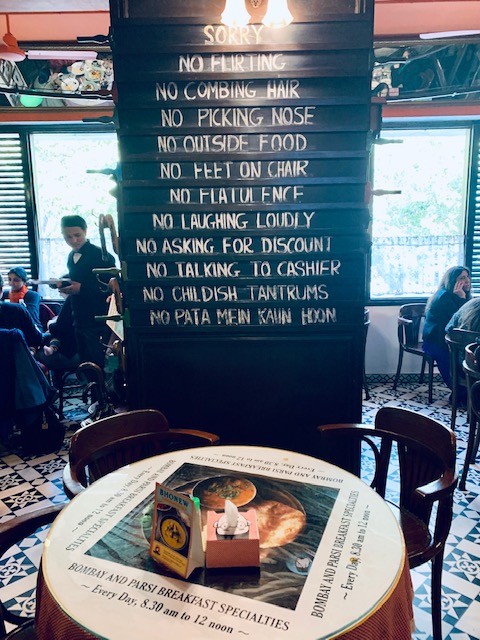 SORRY
NO FLIRTING
NO COMBING HAIR
NO PICKING NOSE
NO OUTSIDE FOOD
NO FEET ON CHAIR
NO FLATULENCE
NO LAUGHING LOUDLY
NO ASKING FOR DISCOUNT
NO TALKING TO CASHIER
NO CHILDISH TANTRUMS
NO PATA MEIN KAUN HOON
BOMBAY AND PARSI BREAKFAST SPECIALTIES
~ Every Day, 8.30 am to 12 noon ~
BOMBAY AND PARSI BREAKFAST SPECIALTIES
~ Every Day, 8.30 am to 12 noon ~
BHONEW
BOMBAY AND PARSI BREAKFAST SPECIALTIES
~ Every Day, 8.30 am to 12 noon ~
BOMBAY AND PARSI BREAKFAST SPECIALTIES
~ Every Day, 8.30 am to 12 noon ~